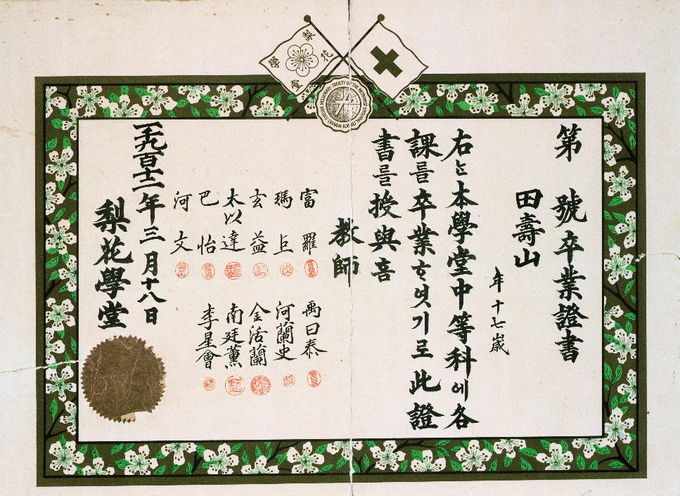 梨花學堂
第 號 卒業證書
田壽山
年十七歲
右는本學堂中等科에各
課를卒業ᄒᆞ엿기로此證
書를授與홈
敎師
富羅 禹日泰
瑪丘 河蘭史
玄益 金活蘭
太以達 南廷薰
巴怡 李星會
河文
一千九百十二年三月十八日
梨花學堂